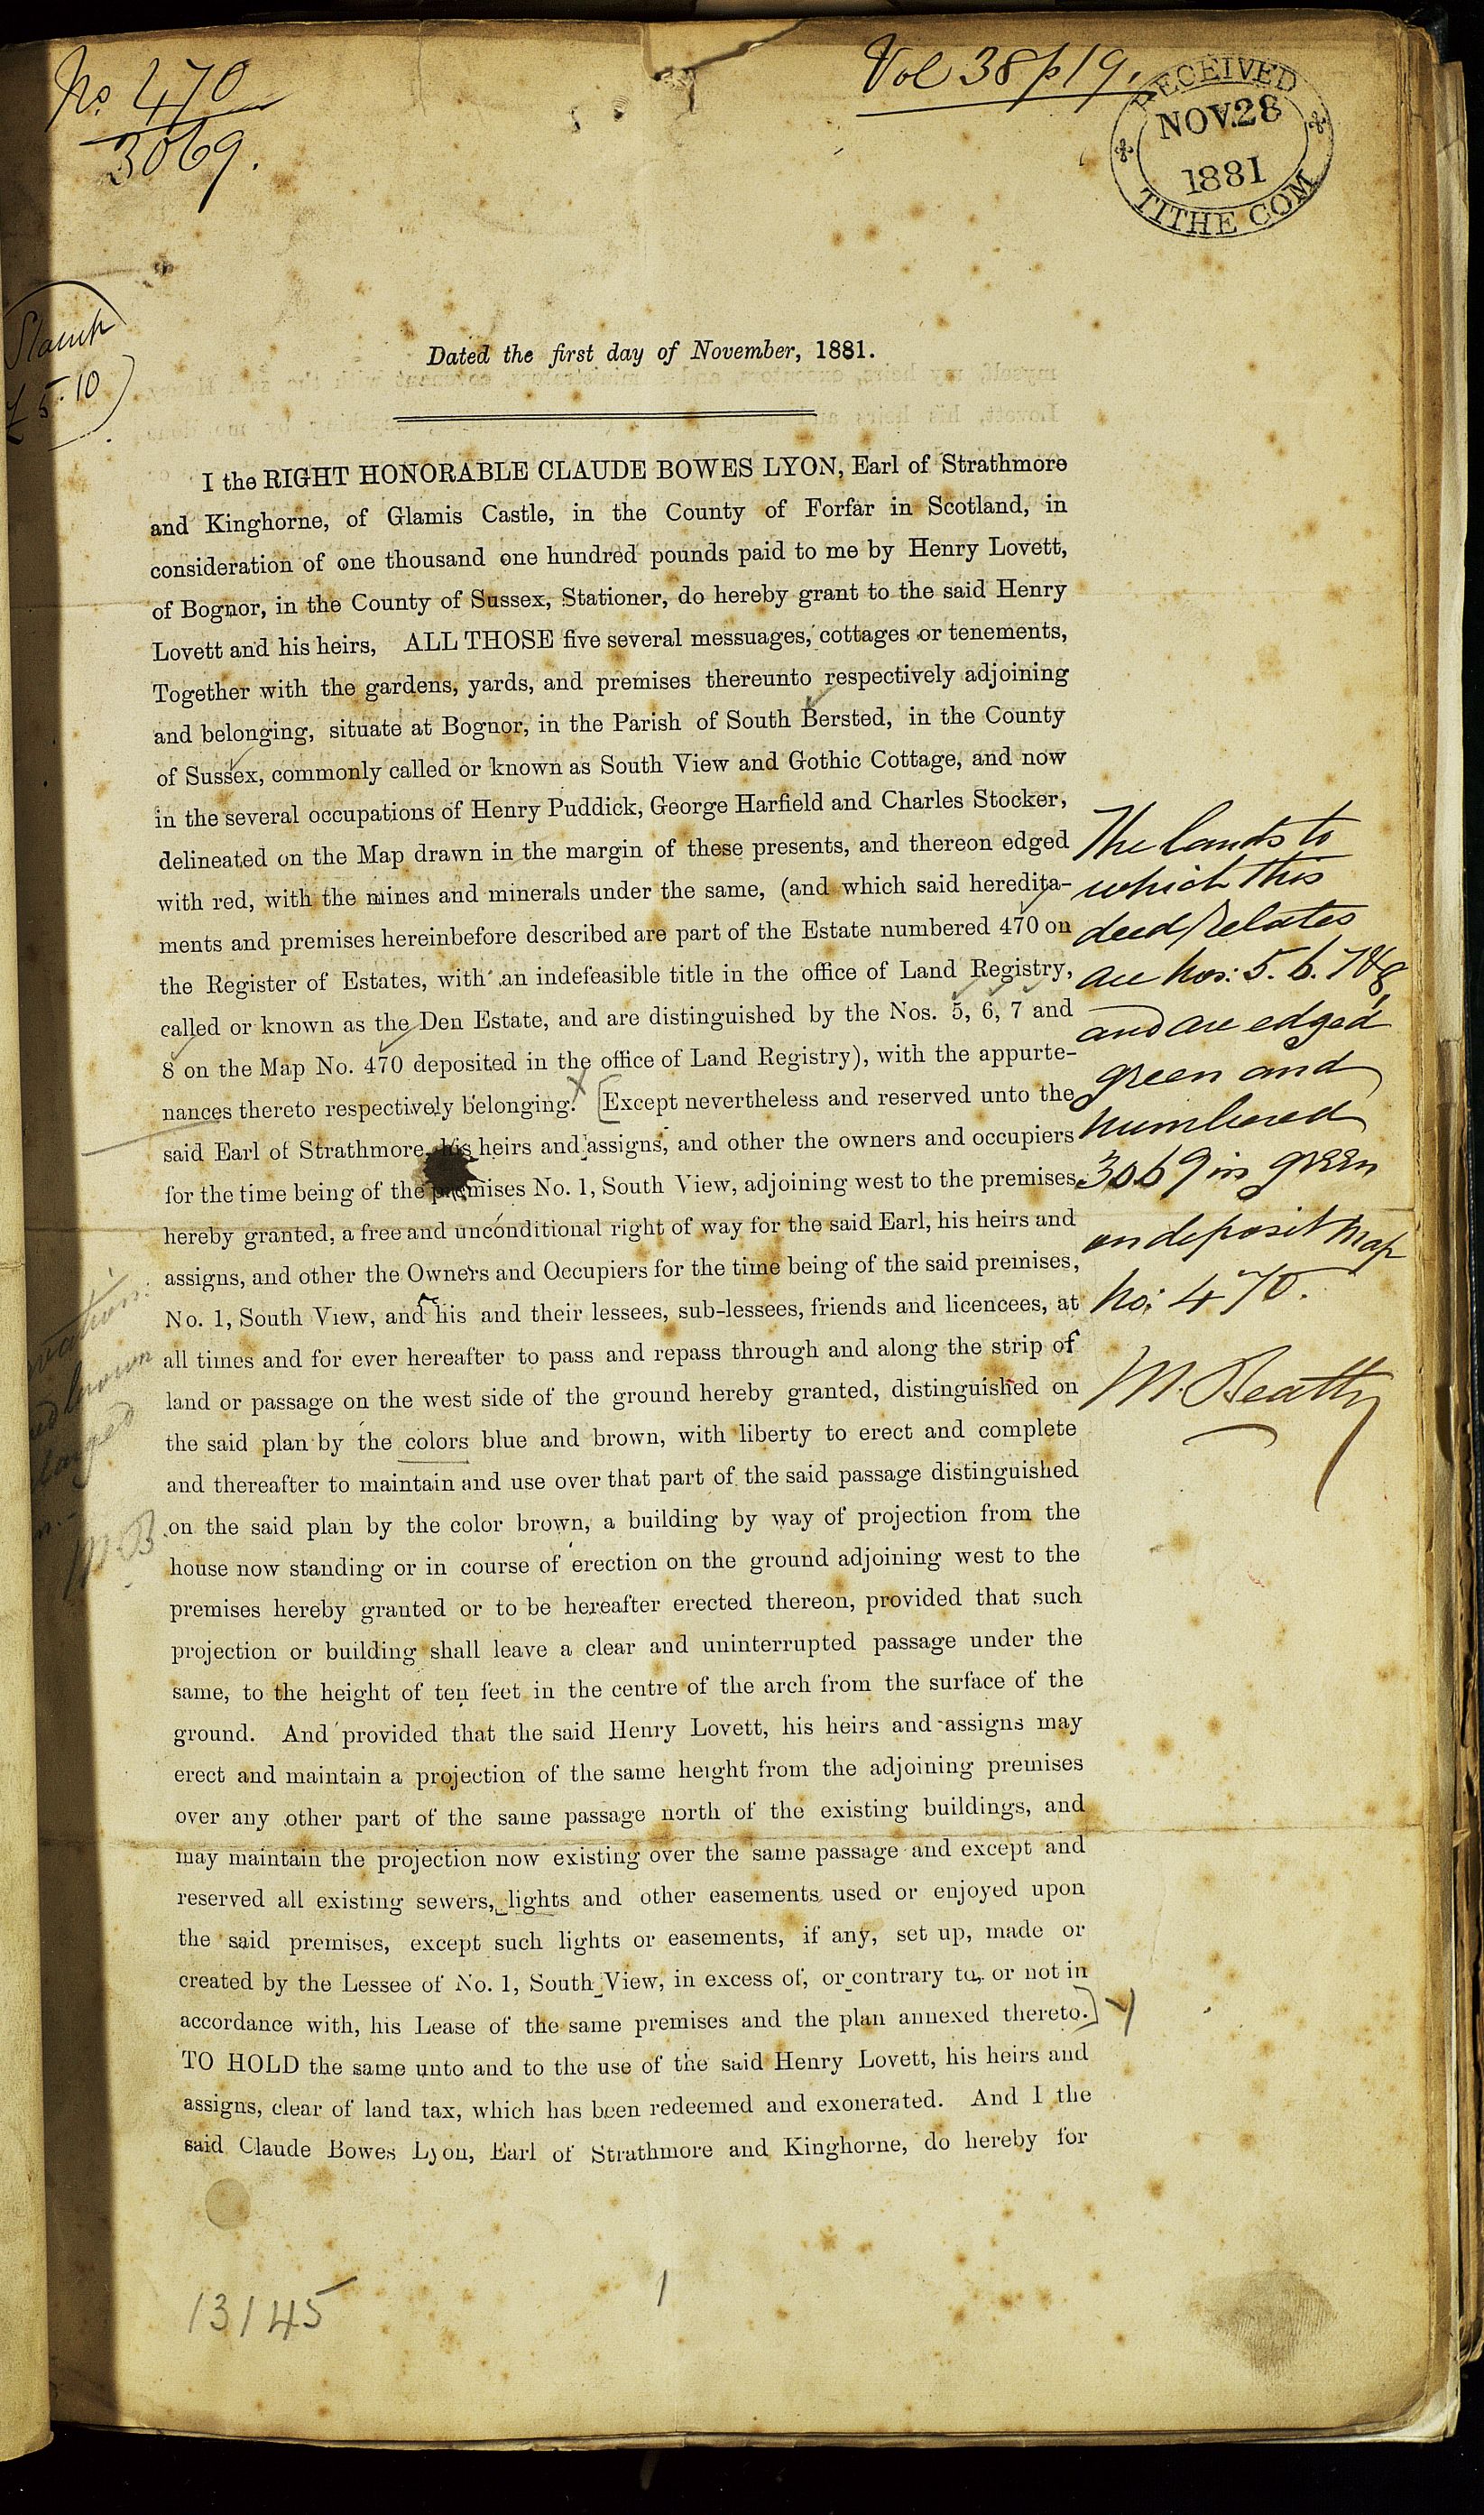 No. 470
3069.
Vol 38 p 19.
RECEIVED
NOV.28
1881
TITHE COM
Stamp
£5.10
Dated the first day of November, 1881.
I the RIGHT HONORABLE CLAUDE BOWES LYON, Earl of Strathmore
and Kinghorne, of Glamis Castle, in the County of Forfar in Scotland, in
consideration of one thousand one hundred pounds paid to me by Henry Lovett,
of Bognor, in the County of Sussex, Stationer, do hereby grant to the said Henry
Lovett and his heirs, ALL THOSE five several messuages, cottages or tenements,
Together with the gardens, yards, and premises thereunto respectively adjoining
and belonging, situate at Bognor, in the Parish of South Bersted, in the County
of Sussex, commonly called or known as South View and Gothic Cottage, and now
in the several occupations of Henry Puddick, George Harfield and Charles Stocker,
delineated on the Map drawn in the margin of these presents, and thereon edged
with red, with the mines and minerals under the same, (and which said heredita-
ments and premises hereinbefore described are part of the Estate numbered 470 on
the Register of Estates, with an indefeasible title in the office of Land Registry,
called or known as the Den Estate, and are distinguished by the Nos. 5, 6, 7 and
8 on the Map No. 470 deposited in the office of Land Registry), with the appurte-
nances thereto respectively belonging. [Except nevertheless and reserved unto the
said Earl of Strathmore, his heirs and assigns, and other the owners and occupiers
for the time being of the premises No. 1, South View, adjoining west to the premises
hereby granted, a free and unconditional right of way for the said Earl, his heirs and
assigns, and other the Owners and Occupiers for the time being of the said premises,
No. 1, South View, and his and their lessees, sub-lessees, friends and licencees, at
all times and for ever hereafter to pass and repass through and along the strip of
land or passage on the west side of the ground hereby granted, distinguished on
the said plan by the colors blue and brown, with liberty to erect and complete
and thereafter to maintain and use over that part of the said passage distinguished
on the said plan by the color brown, a building by way of projection from the
house now standing or in course of erection on the ground adjoining west to the
premises hereby granted or to be hereafter erected thereon, provided that such
projection or building shall leave a clear and uninterrupted passage under the
same, to the height of ten feet in the centre of the arch from the surface of the
ground. And provided that the said Henry Lovett, his heirs and assigns may
erect and maintain a projection of the same height from the adjoining premises
over any other part of the same passage north of the existing buildings, and
may maintain the projection now existing over the same passage and except and
reserved all existing sewers, lights and other easements used or enjoyed upon
the said premises, except such lights or easements, if any, set up, made or
created by the Lessee of No. 1, South View, in excess of, or contrary to, or not in
accordance with, his Lease of the same premises and the plan annexed thereto.]
TO HOLD the same unto and to the use of the said Henry Lovett, his heirs and
assigns, clear of land tax, which has been redeemed and exonerated. And I the
said Claude Bowes Lyon, Earl of Strathmore and Kinghorne, do hereby for
The lands to
which this
deed relates
are Nos: 5. 6. 7 & 8
and are edged
green and
numbered
3069 in green
on deposit Map
No: 470.
M. Beatty
brown
M.B
13145
1